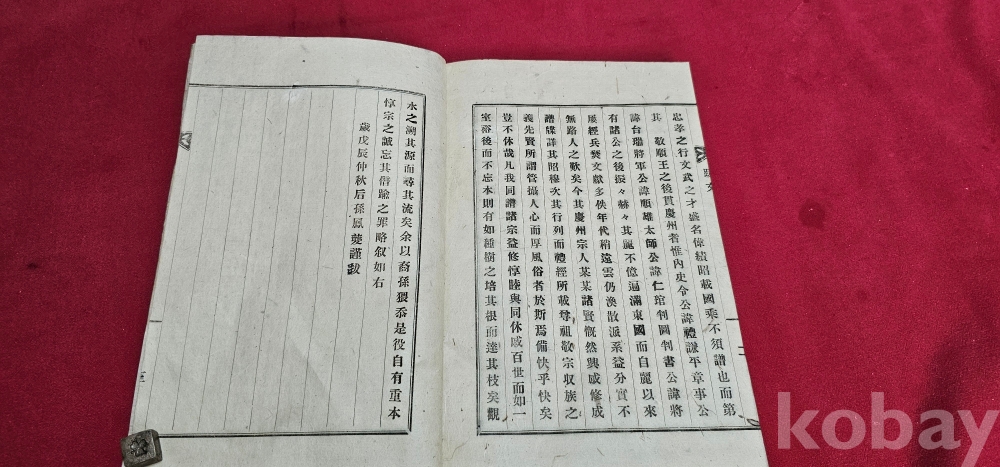 忠孝之行文武之才盛名偉績昭載國乘不須譜也而第
其 敬順王之後貫慶州者惟內史令公諱禮謙平章事公
諱台瑞將軍公諱順雄太師公諱仁琯判圖判書公諱將
有諸公之後振々赫々其麗不億遍滿東國而自麗以來
屢經兵燹文獻多佚年代稍遠雲仍渙散派系益分實不
無路人之歎矣今其慶州宗人某某諸賢慨然興感修成
譜牒詳其昭穆次其行列而禮經所載尊祖敬宗収族之
義先賢所謂管攝人心而厚風俗者於斯焉備快乎快矣
豈不休哉凡我同譜諸宗益修惇睦與同休戚百世而如一
室裕後而不忘本則有如種樹之培其根而達其枝矣觀
二
水之溯其源而尋其流矣余以裔孫猥忝是役自有重本
惇宗之誠忘其僭踰之罪略叙如右
歲戊辰仲秋后孫鳳 謹跋
三
kobay